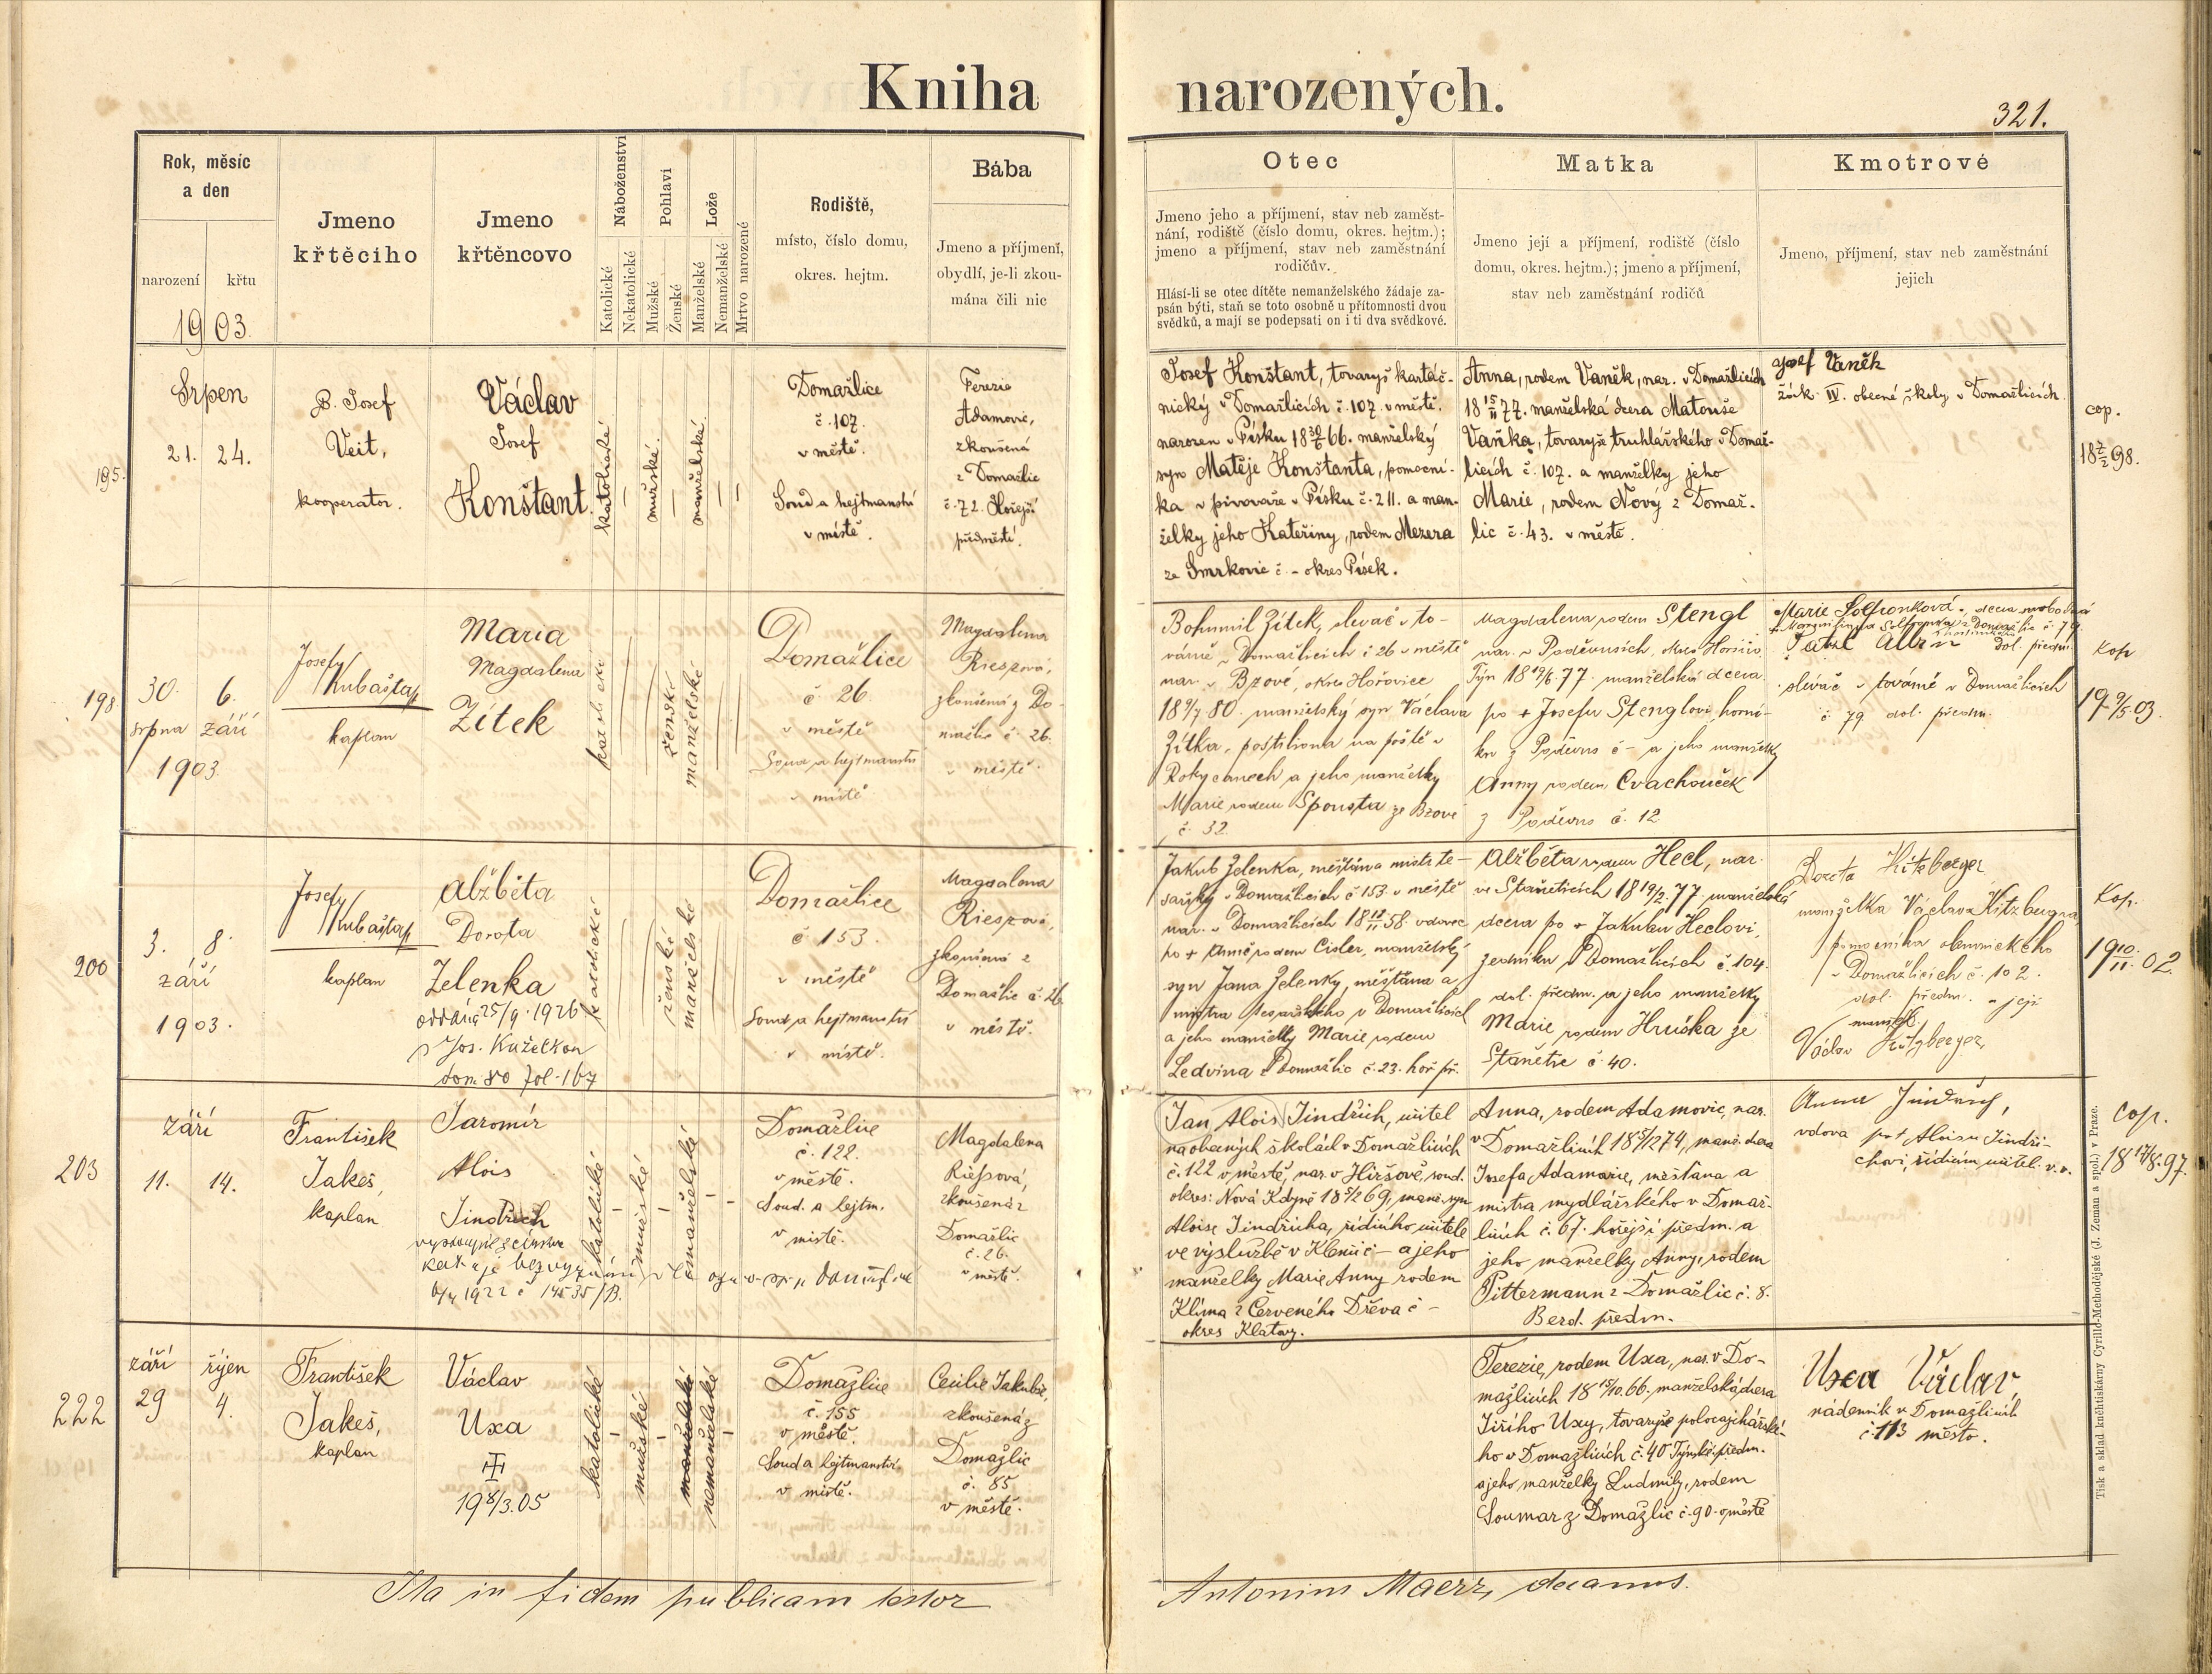 Kniha narozených.
321.
Rok, měsíc
a den
narození
křtu
1903.
Jmeno
křtěcího
Jmeno
křtěncovo
Náboženství
Katolické
Nekatolické
Pohlaví
Mužské
Ženské
Lože
Manželské
Nemanželské
Mrtvo narozené
Rodiště,
místo, číslo domu,
okres. hejtm.
Bába
Jmeno a příjmení,
obydlí, je-li zkou-
mána čili nic
Otec
Jmeno jeho a příjmení, stav neb zaměst-
nání, rodiště (číslo domu, okres. hejtm.);
jmeno a příjmení, stav neb zaměstnání
rodičův.
Hlásí-li se otec dítěte nemanželského žádaje za-
psán býti, staň se toto osobně u přítomnosti dvou
svědků, a mají se podepsati on i ti dva svědkové.
Matka
Jmeno její a příjmení, rodiště (číslo
domu, okres. hejtm.); jmeno a příjmení,
stav neb zaměstnání rodičů
Kmotrové
Jmeno, příjmení, stav neb zaměstnání
jejich
195.
Srpen
21. 24.
P. Josef
Veit,
kooperator.
Václav
Josef
Konštant
katolické
mužské
manželské
Domažlice
č. 107.
v městě.
Soud a hejtmanství
v místě.
Terezie
Adamovic,
zkoušená
z Domažlic
č. 72. Hořejší
předměstí.
Josef Konštant, tovaryš kartáč-
nický v Domažlicích č. 107. v městě,
narozen v Písku 18 30/6 66. manželský
syn Matěje Konštanta, pomocní-
ka v pivovaře v Písku č. 211. a man-
želky jeho Kateřiny, rodem Mezera
ze Smrkovic č. - okres Písek.
Anna, rodem Vaněk, nar. v Domažlicích
18 15/II 77. manželská dcera Matouše
Vaňka, tovaryše truhlářského v Domaž-
licích č. 107. a manželky jeho
Marie, rodem Nový z Domaž-
lic č. 43. v městě.
Josef Vaněk
žák IV. obecné školy v Domažlicích
cop.
18 7/2 98.
198
30. 6.
srpna září
1903.
Josef
Kubaštap
kaplan
Maria
Magdalena
Zítek
katolické
ženské
manželské
Domažlice
č 26.
v městě
Soud a hejtmanství
v místě
Magdalena
Rieszová,
zkoušená z Do-
mažlic č. 26.
v městě.
Bohumil Zítek, slevač v to-
várně v Domažlicích č 26 v městě
nar. v Bzové, okres Hořovice
18 9/7 80. manželský syn Václava
Zítka, postiliona na poště v
Rokycanech a jeho manželky
Marie rodem Spousta ze Bzové
č. 32.
Magdalena rodem Stengl
nar. v Poděvousích, okres Horšův.
Týn 18 19/6 77. manželská dcera
po + Josefu Stenglovi, horní-
ku z Poděvous č - a jeho manželky
Anny rodem Cvachouček
z Poděvous č. 12
Marie Solfronková. dcera svobodná
slévač v továrně v Domažlicích
č. 79 dol. předm.
Kop
19 9/5 03.
200
3. 8.
září
1903.
Josef
Kubaštap
kaplan
Alžběta
Dorota
Zelenka
oddána 25/9. 1926
s Jos. Kuželkou
dom. 80 fol. 167
katolické
ženské
manželské
Domažlice
č 153.
v městě
Soud a hejtmanství
v místě.
Magdalena
Rieszová,
zkoušená z
Domažlic č 26
v městě.
Jakub Zelenka, měšťan a mistr te-
sařský v Domažlicích č 153. v městě
nar. v Domažlicích 18 18/II 58. vdovec
po + Anně rodem Cisler, manželský
syn Jana Zelenky, měšťana a
mistra tesařského v Domažlicích
a jeho manželky Marie rodem
Ledvina z Domažlic č. 23. hoř. př.
Alžběta rodem Hecl, nar.
ve Stanětících 18 19/2 77. manželská
dcera po + Jakubu Heclovi,
zedníku v Domažlicích č. 104.
dol. předm. a jeho manželky
Marie, rodem Hruška ze
Stanětic č. 40.
Doreta Kitzberger
manželka Václava Kitzbergra,
pomocníka obuvnického
v Domažlicích č. 102.
dol. předm. a její
manžel
Václav Kitzberger,
Kop.
19 10/II. 02.
203
září
11. 14.
František
Jakeš,
kaplan
Jaromír
Alois
Jindřich
vystoupil z církve
kat. a je bez vyznání
6/4 1922 č 14535/B.
katolické
mužské
manželské
Domažlice
č. 122.
v městě.
Soud. a hejtm.
v místě.
Magdalena
Riessová,
zkoušená z
Domažlic
č. 26.
v městě.
Jan Alois Jindřich, učitel
na obecných školách v Domažlicích
č. 122 v městě, nar. v Hiršově, soud.
okres: Nová Kdyně 18 5/2 69, manž. syn
Aloise Jindřicha, řídícího učitele
ve výslužbě v Klenčí č - a jeho
manželky Marie Anny rodem
Klíma z Červeného Dřeva č -
okres Klatovy.
Anna, rodem Adamovic, nar.
v Domažlicích 18 5/12 74, manž. dcera
Josefa Adamovice, měšťana a
mistra mydlářského v Domaž-
licích č. 67. hořejší předm. a
jeho manželky Anny, rodem
Pittermann z Domažlic č. 8.
Berd. předm.
Anna Jindřich,
vdova po + Aloisu Jindři-
chovi, řídícím učitel. v. v.
cop.
18 17/8. 97.
222
září říjen
29 4.
František
Jakeš,
kaplan
Václav
Uxa
19 8/3. 05
katolické
mužské
manželské
nemanželské
Domažlice
č. 155
v městě.
Soud a hejtmanství
v místě.
Cecilie Jakubše,
zkoušená z
Domažlic
č. 85
v městě.
Terezie, rodem Uxa, nar. v Do-
mažlicích 18 15/10. 66. manželská dcera
Jiřího Uxy, tovaryše polocajchářské-
ho v Domažlicích č. 40 Týnské předm.
a jeho manželky Ludmily, rodem
Soumar z Domažlic č. 90. v městě
Uxa Václav,
nádeník v Domažlicích
č. 113 město.
Ita in fidem publicam testor
Antonius Maerz, decanus.
Tisk a sklad kněhtiskárny Cyrillo-Methodějské (J. Zeman a spol.) v Praze.